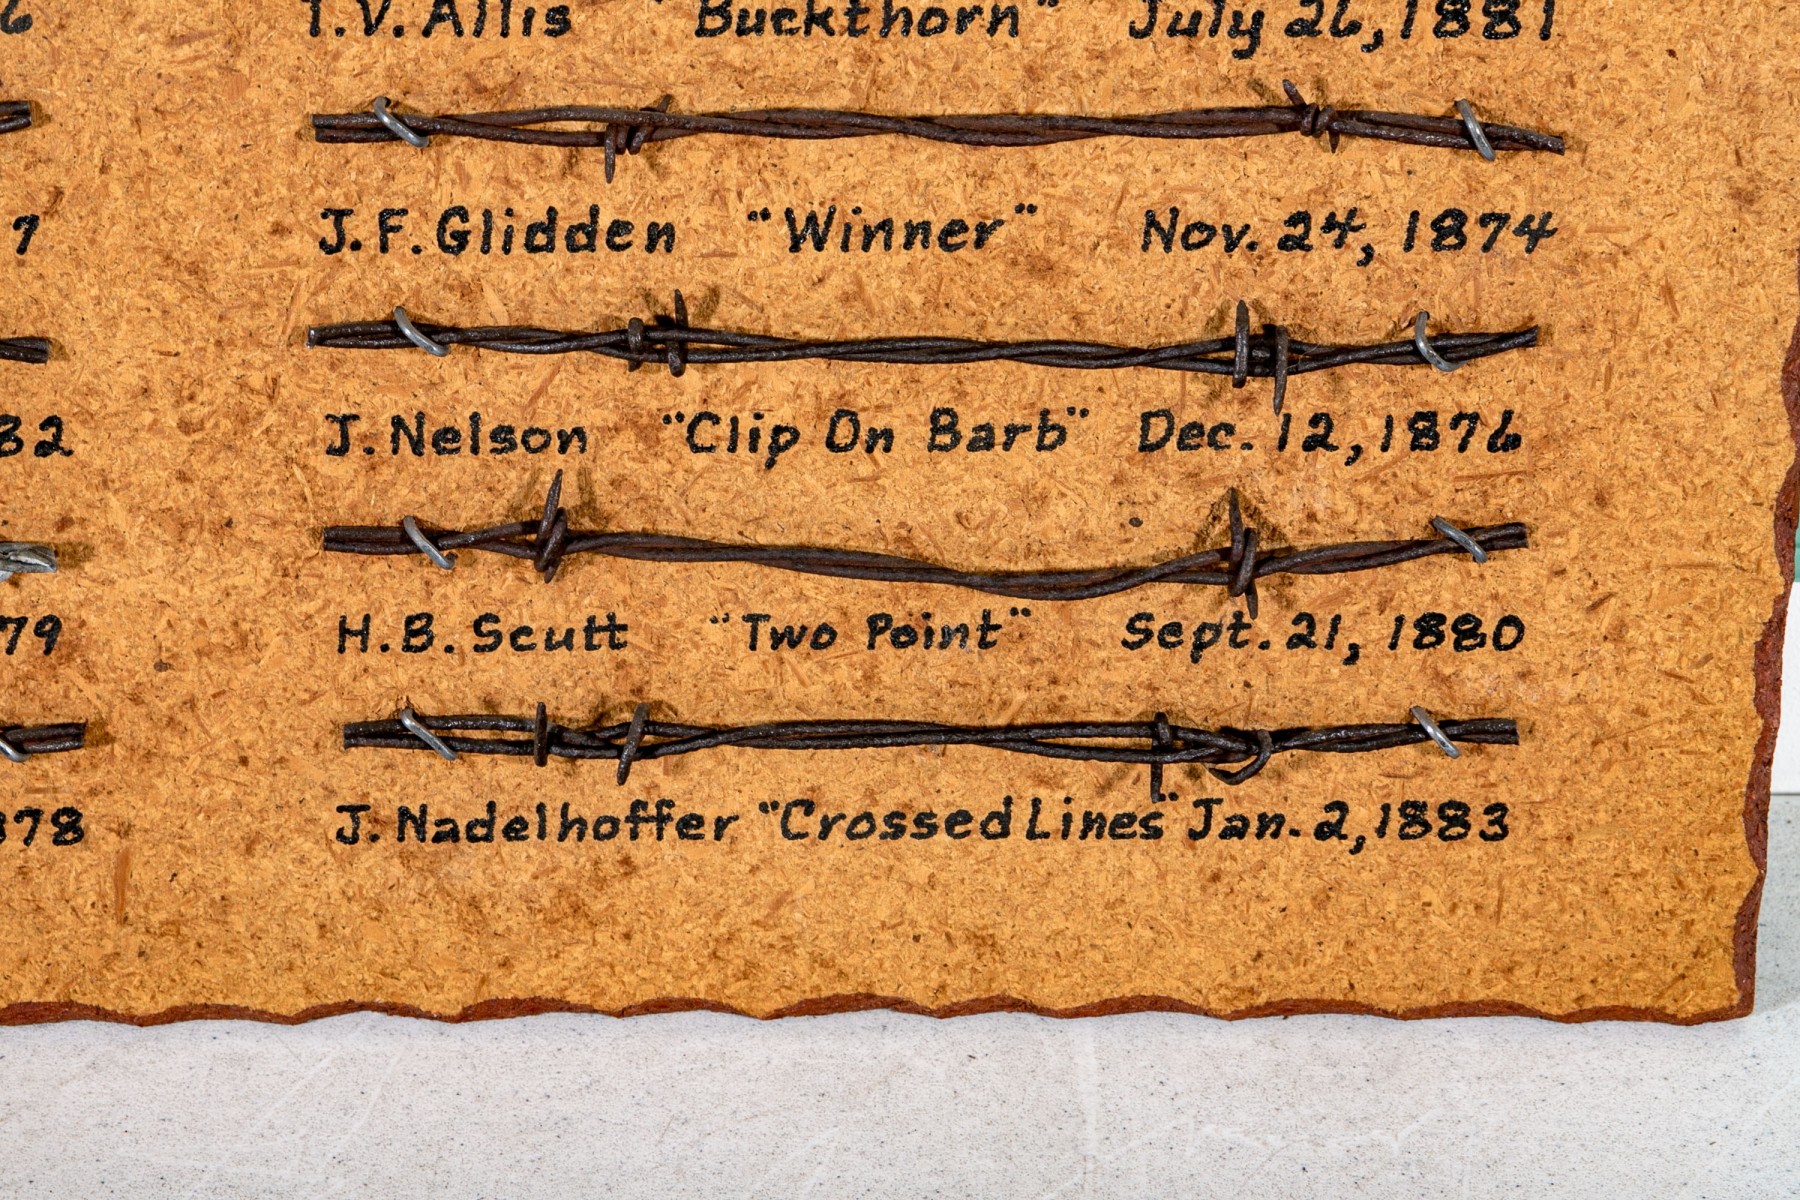 6 T.V. Allis "Buckthorn" July 26, 1881
7 J.F. Glidden "Winner" Nov. 24, 1874
82 J. Nelson "Clip On Barb" Dec. 12, 1876
79 H.B. Scutt "Two Point" Sept. 21, 1880
878 J. Nadelhoffer "Crossed Lines" Jan. 2, 1883